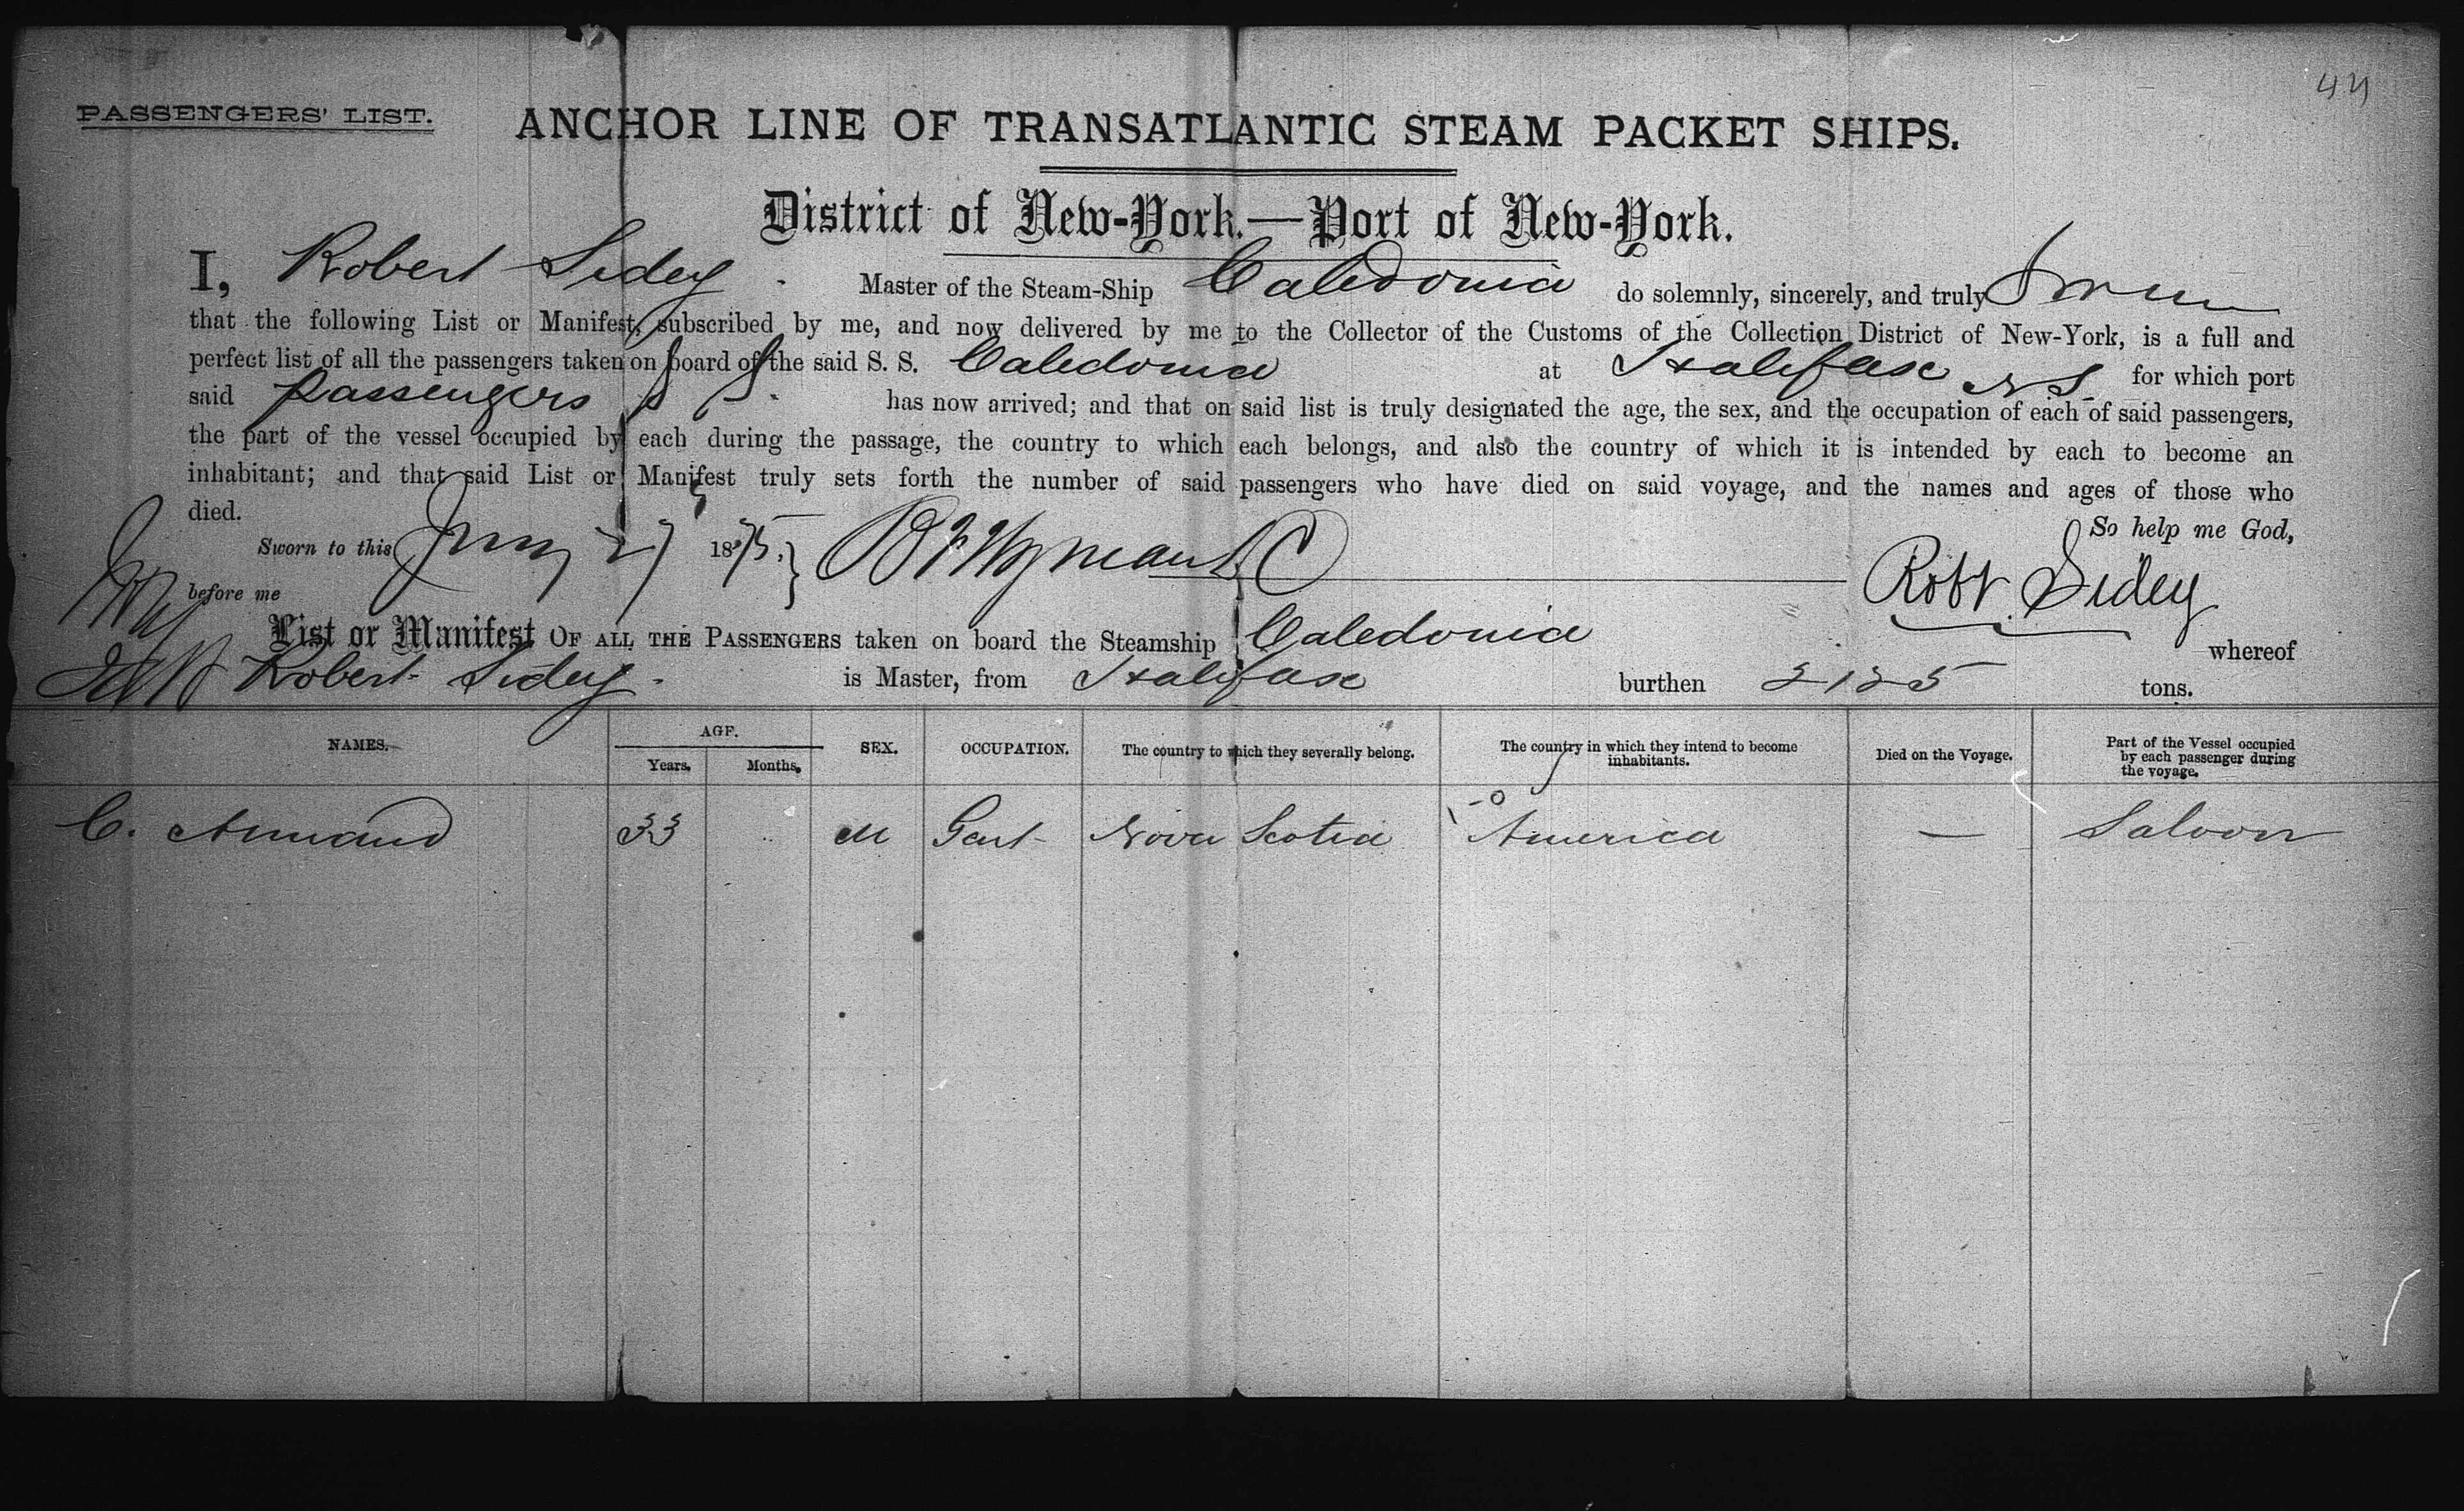 44
PASSENGERS' LIST.
ANCHOR LINE OF TRANSATLANTIC STEAM PACKET SHIPS.
District of New-York.—Port of New-York.
I, Robert Sidey Master of the Steam-Ship Caledonia do solemnly, sincerely, and truly Swear
that the following List or Manifest, subscribed by me, and now delivered by me to the Collector of the Customs of the Collection District of New-York, is a full and
perfect list of all the passengers taken on board of the said S. S. Caledonia at Halifax N S for which port
said passengers S S. has now arrived; and that on said list is truly designated the age, the sex, and the occupation of each of said passengers,
the part of the vessel occupied by each during the passage, the country to which each belongs, and also the country of which it is intended by each to become an
inhabitant; and that said List or Manifest truly sets forth the number of said passengers who have died on said voyage, and the names and ages of those who
died.
So help me God,
Sworn to this 27 1875. } B F Wyman D C
before me
Robt. Sidey
List or Manifest OF ALL THE PASSENGERS taken on board the Steamship Caledonia whereof
Robert Sidey. is Master, from Halifax burthen 2125 tons.
NAMES. AGE. Years. Months. SEX. OCCUPATION. The country to which they severally belong. The country in which they intend to become inhabitants. Died on the Voyage. Part of the Vessel occupied by each passenger during the voyage.
C. Annand 33 .. M Gent Nova Scotia America — Saloon